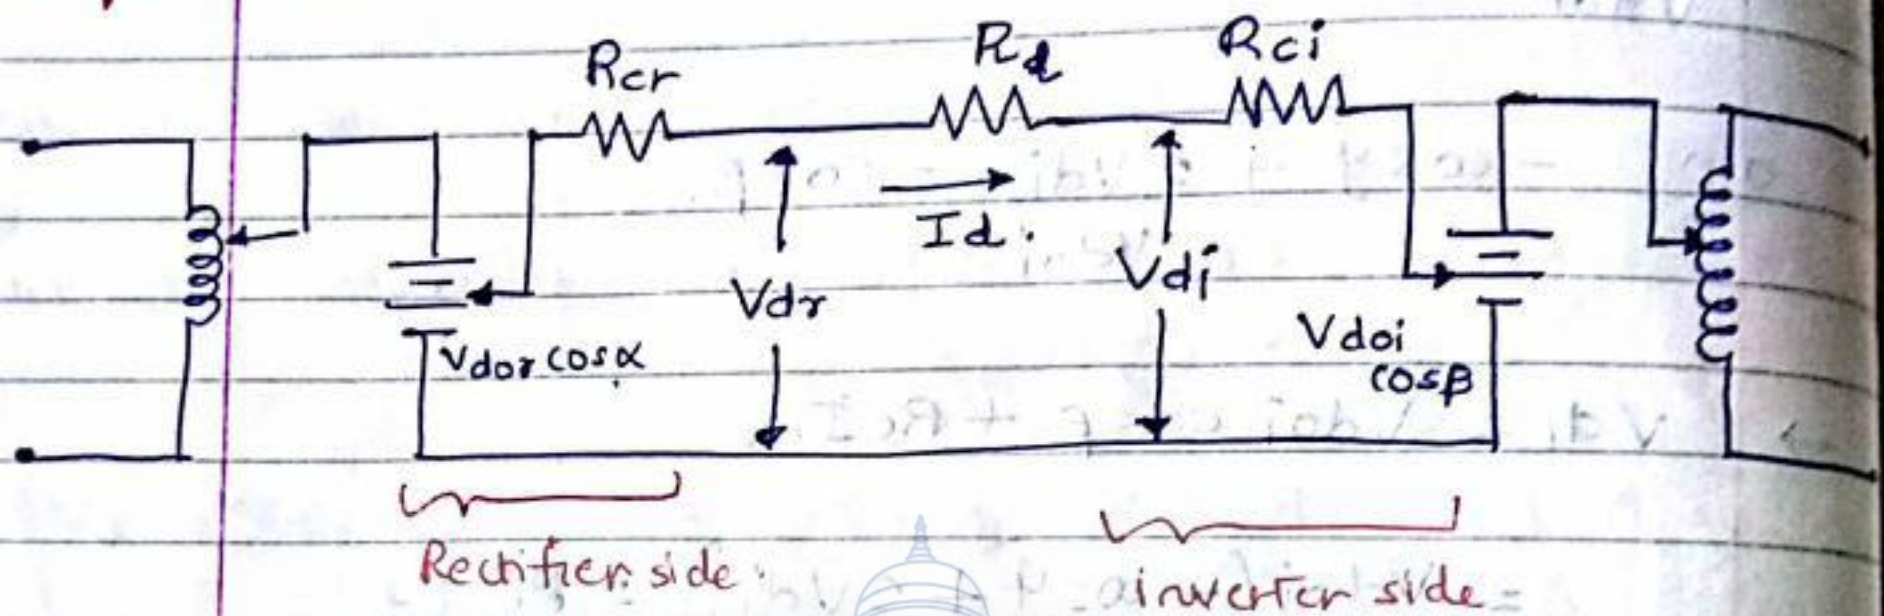 Rcr
Rd
Rci
Id.
Vdr
Vdi
Vdor cosα
Vdoi
cosβ
Rectifier side
inverter side